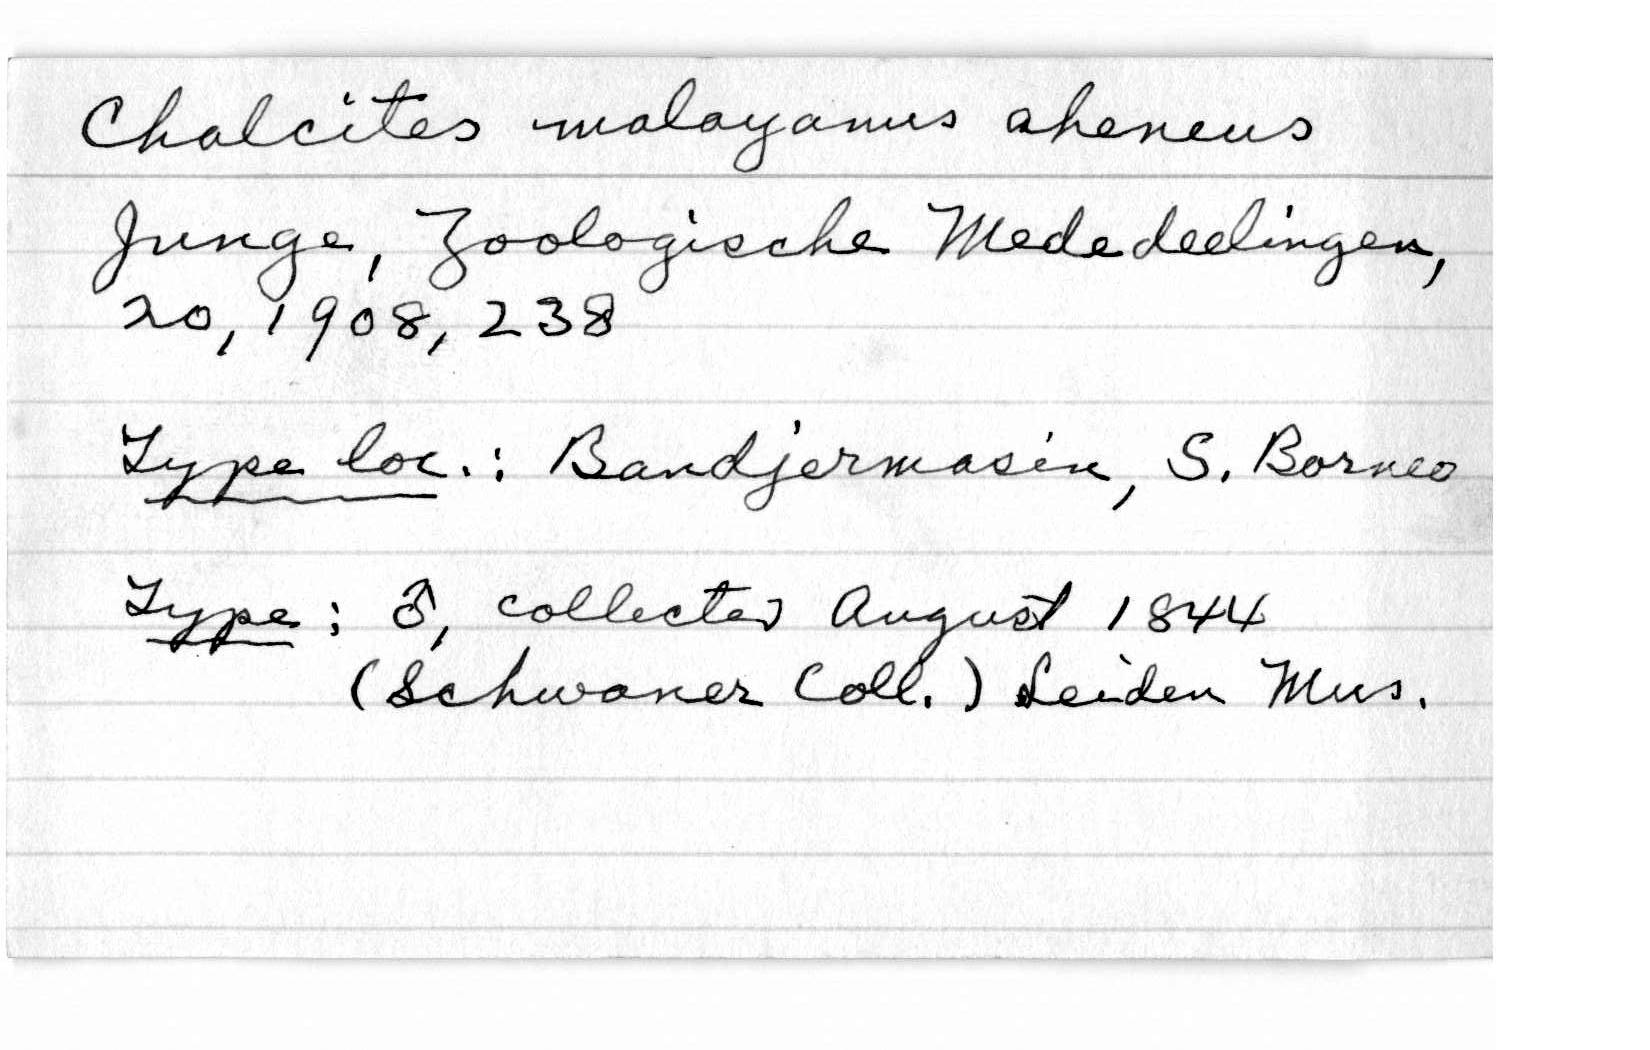 Chalcites malayanus aheneus
Junge, Zoologische Mededeelingen,
20, 1908, 238
Type loc.: Bandjermasin, S. Borneo
Type: ♂, collected August 1844
(Schwaner Coll.) Leiden Mus.